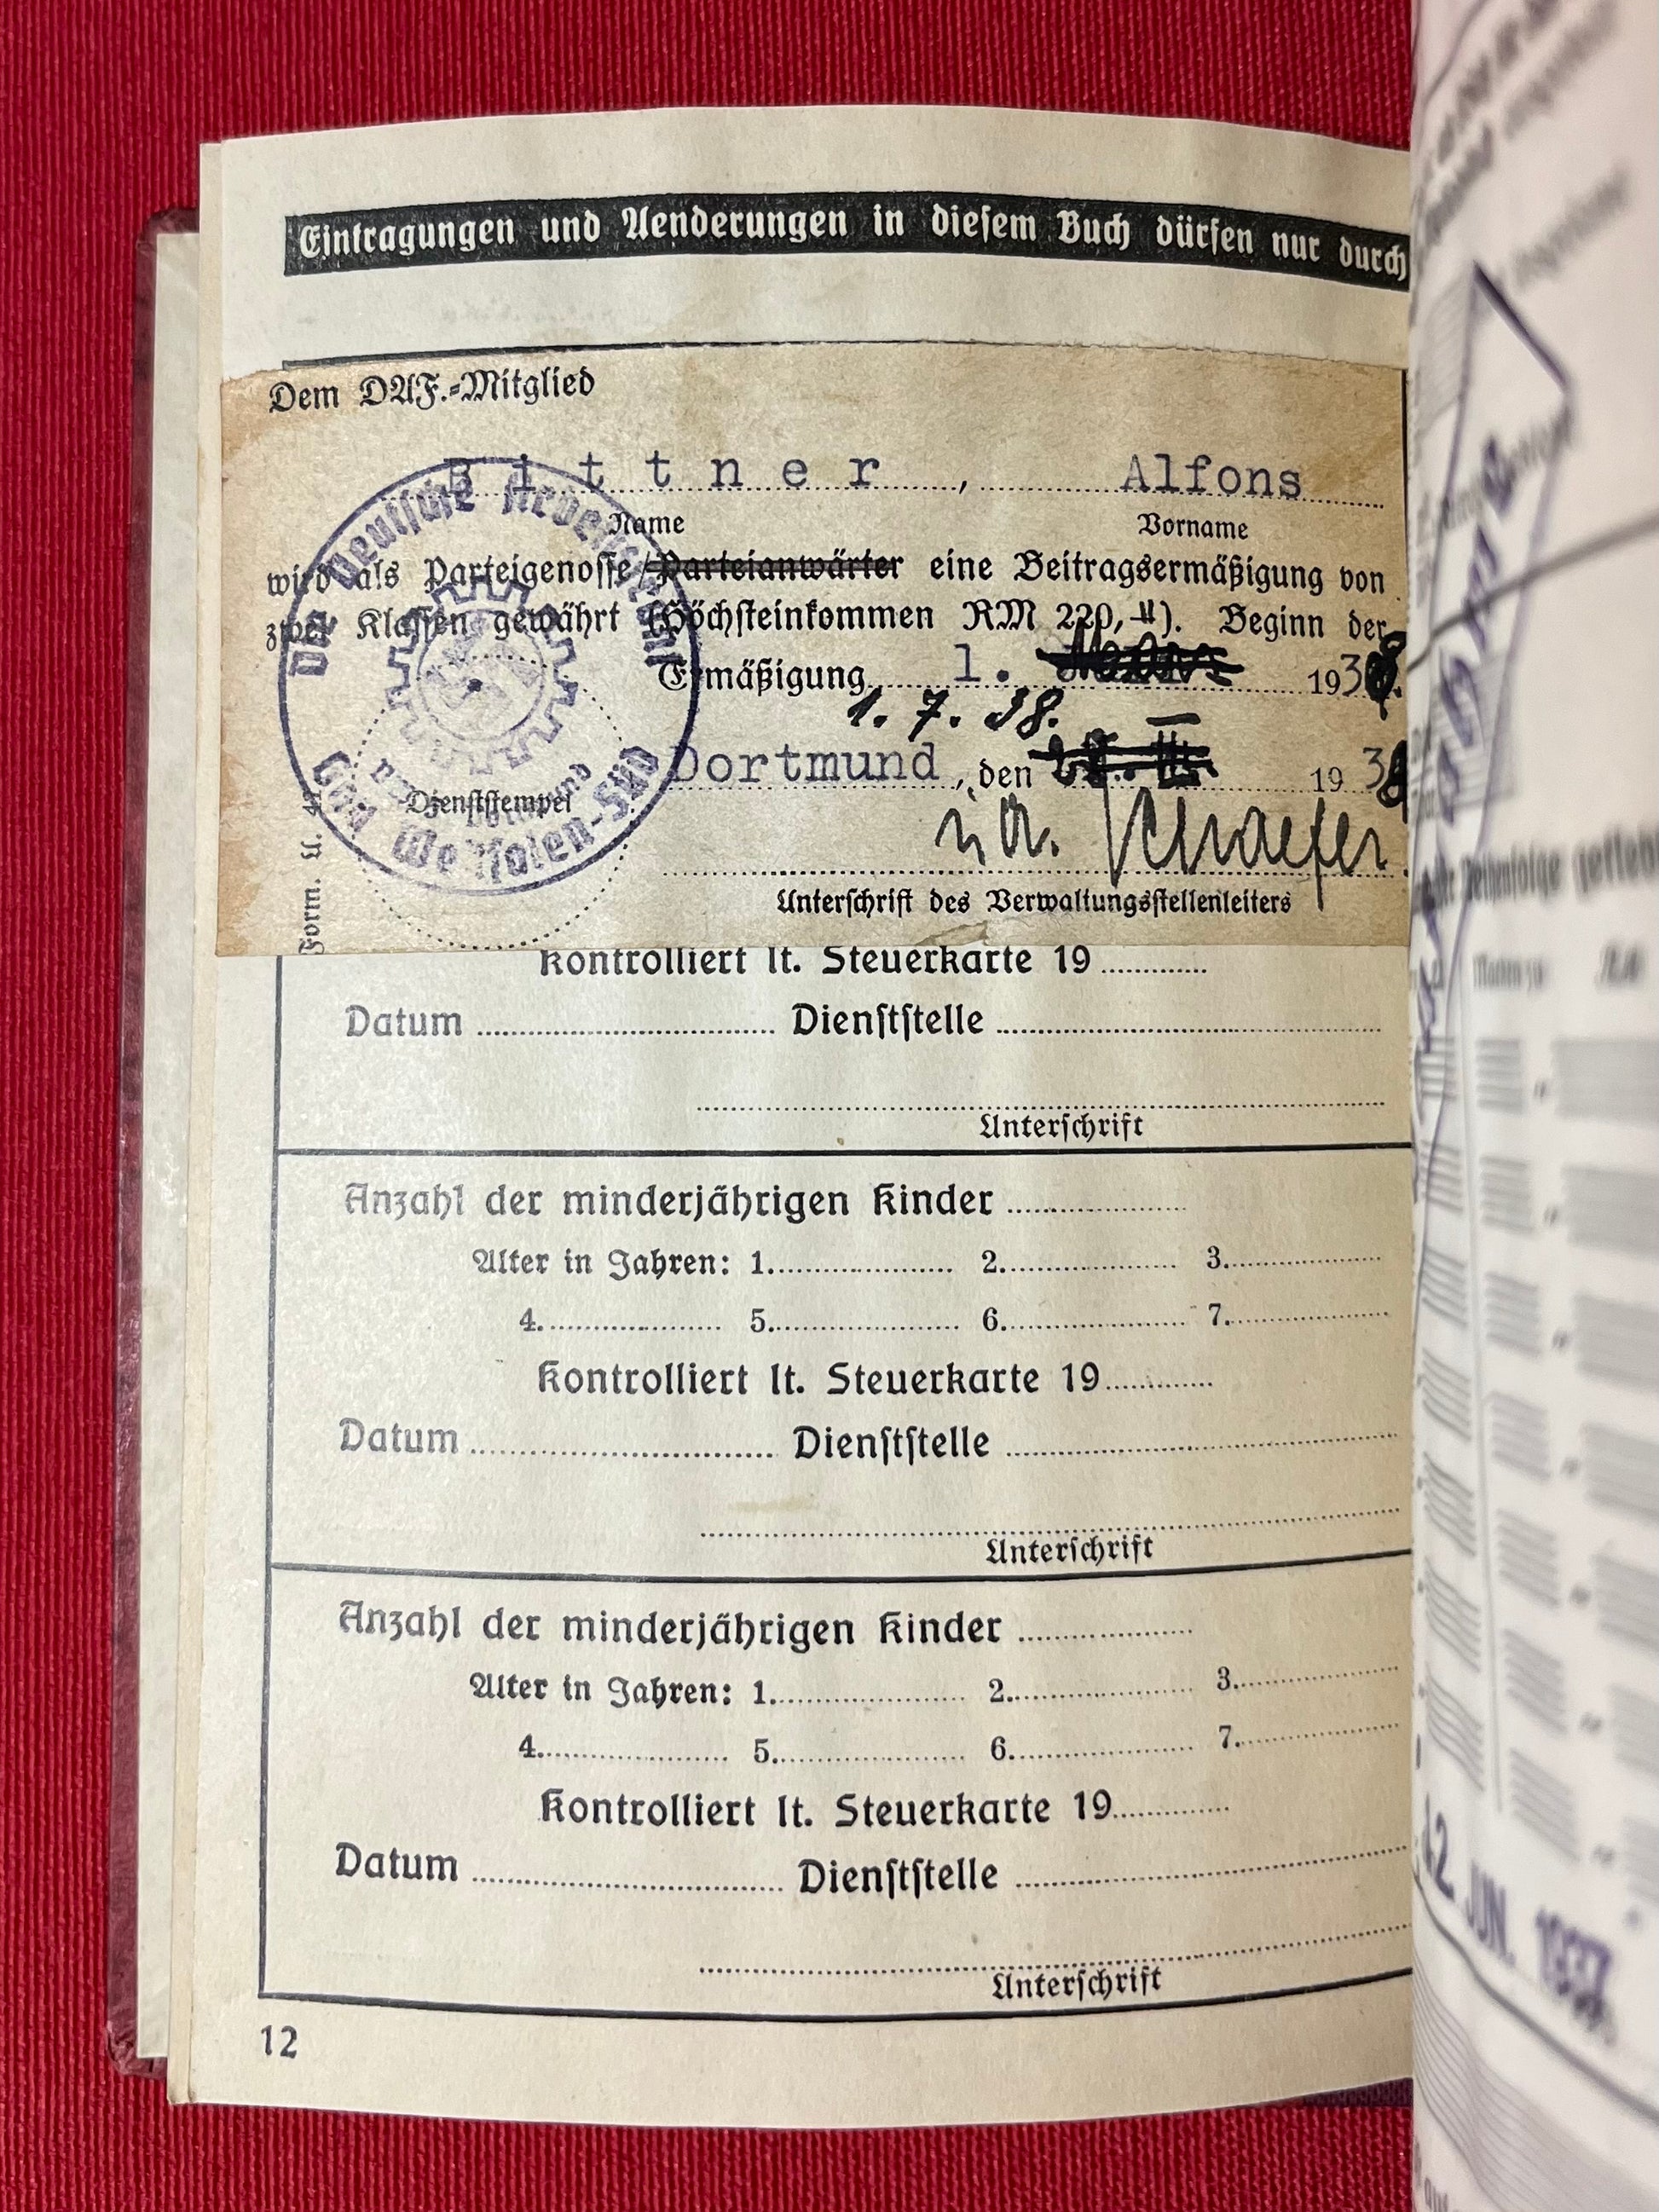 Eintragungen und Aenderungen in diesem Buch dürfen nur durch
Dem DAF.-Mitglied
Bittner, Alfons
Name Vorname
wird als Parteigenosse/Parteianwärter eine Beitragsermäßigung von
zwei Klassen gewährt (Höchsteinkommen RM 220,-). Beginn der
Ermäßigung 1. 1938.
1. 7. 38.
Dortmund, den 1938
i.A. Schaefer
Unterschrift des Verwaltungsstellenleiters
Die Deutsche Arbeitsfront
Gau Westfalen-Süd
Dortmund
Dienststempel
Form. U.
Kontrolliert lt. Steuerkarte 19
Datum Dienststelle
Unterschrift
Anzahl der minderjährigen Kinder
Alter in Jahren: 1. 2. 3.
4. 5. 6. 7.
Kontrolliert lt. Steuerkarte 19
Datum Dienststelle
Unterschrift
Anzahl der minderjährigen Kinder
Alter in Jahren: 1. 2. 3.
4. 5. 6. 7.
Kontrolliert lt. Steuerkarte 19
Datum Dienststelle
Unterschrift
12
Reihenfolge geklebt
12. JUN. 1937